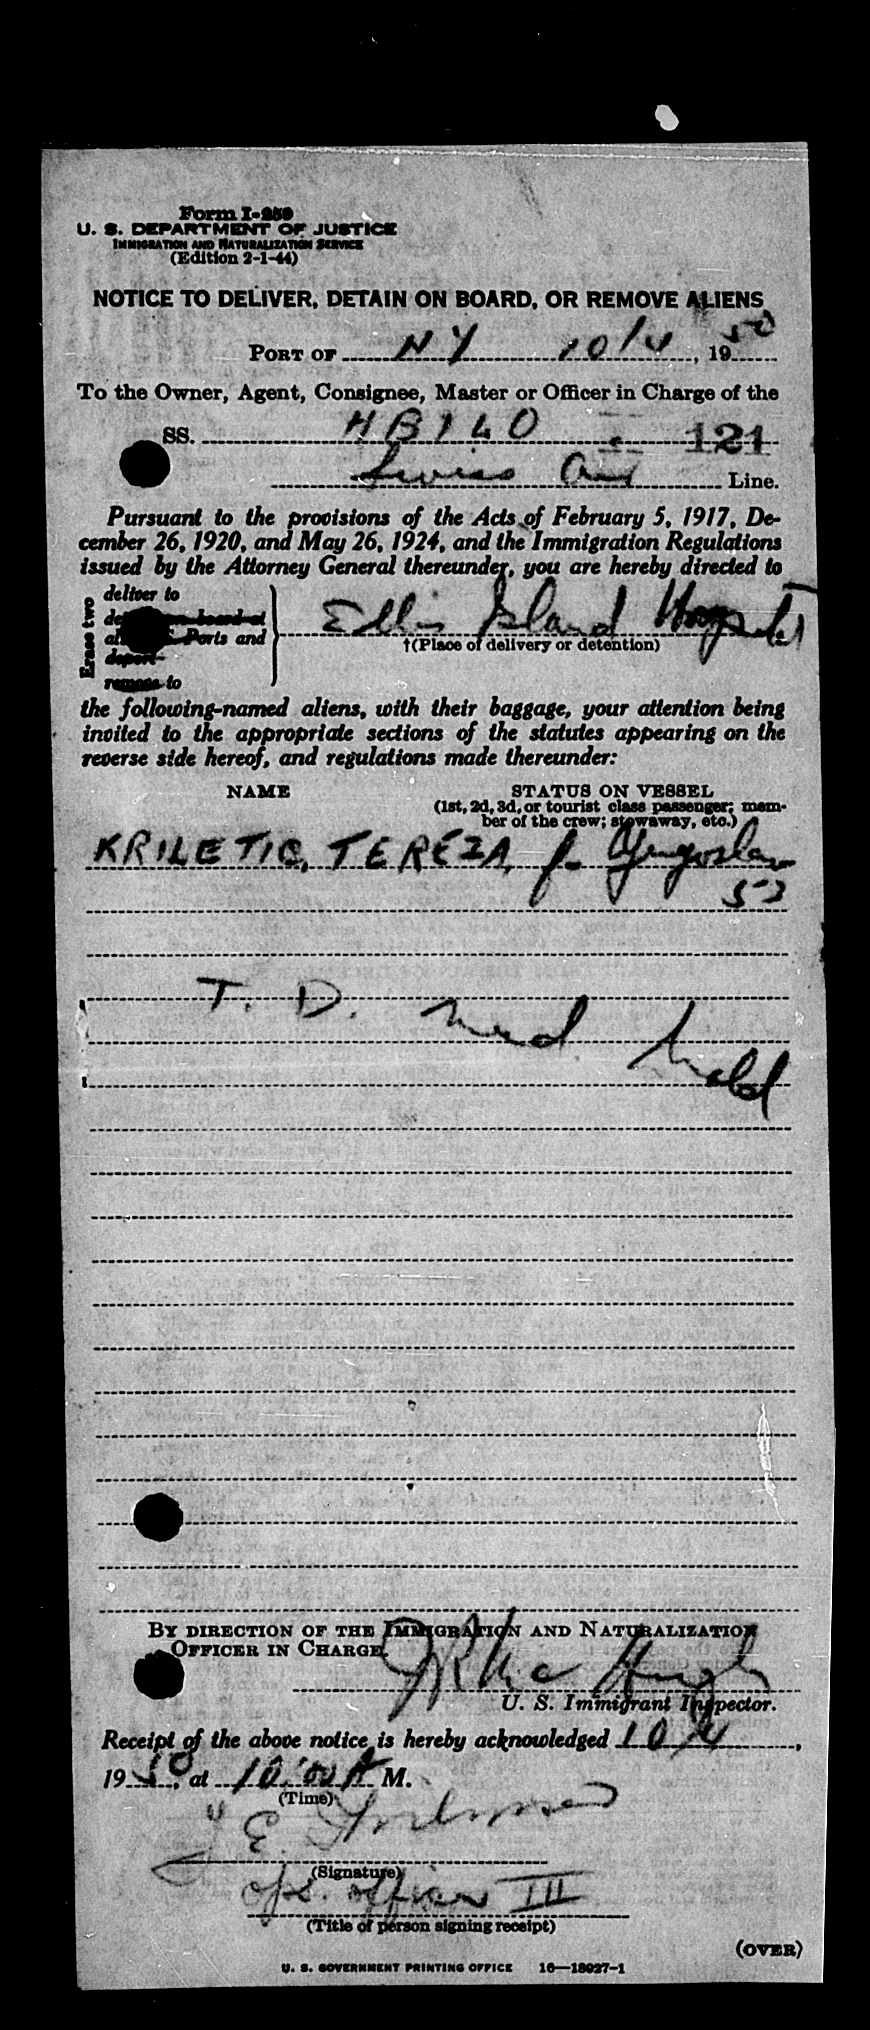 Form I-259
U. S. DEPARTMENT OF JUSTICE
IMMIGRATION AND NATURALIZATION SERVICE
(Edition 2-1-44)
NOTICE TO DELIVER, DETAIN ON BOARD, OR REMOVE ALIENS
PORT OF NY 10/4, 1950
To the Owner, Agent, Consignee, Master or Officer in Charge of the
SS. HBILO 121
Swiss Air Line.
Pursuant to the provisions of the Acts of February 5, 1917, De-
cember 26, 1920, and May 26, 1924, and the Immigration Regulations
issued by the Attorney General thereunder, you are hereby directed to
Erase two
deliver to
on board at
Ports and
deport
remove to
Ellis Island Hospital
†(Place of delivery or detention)
the following-named aliens, with their baggage, your attention being
invited to the appropriate sections of the statutes appearing on the
reverse side hereof, and regulations made thereunder:
NAME STATUS ON VESSEL
(1st, 2d, 3d, or tourist class passenger; mem-
ber of the crew; stowaway, etc.)
KRILETIC, TEREZA, f- Yugoslav
53
T. D. Med hold
BY DIRECTION OF THE IMMIGRATION AND NATURALIZATION
OFFICER IN CHARGE.
U. S. Immigrant Inspector.
Receipt of the above notice is hereby acknowledged 10/4,
1950, at 10:00 A M.
(Time)
E.
(Signature)
ops. officer III
(Title of person signing receipt)
(OVER)
U. S. GOVERNMENT PRINTING OFFICE 16—18027-1